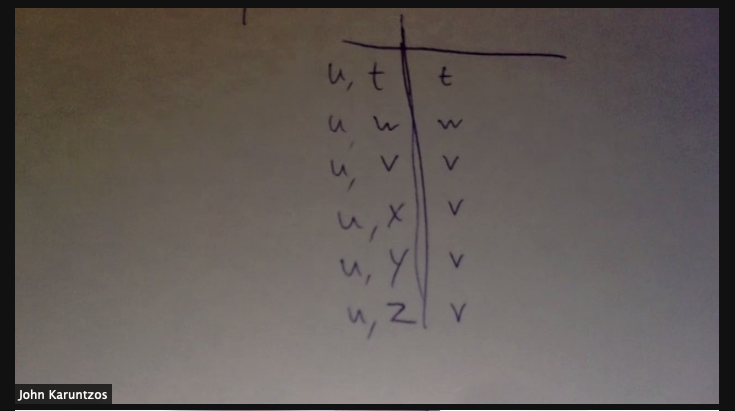 u, t t
u, w w
u, v v
u, x v
u, y v
u, z v
John Karuntzos